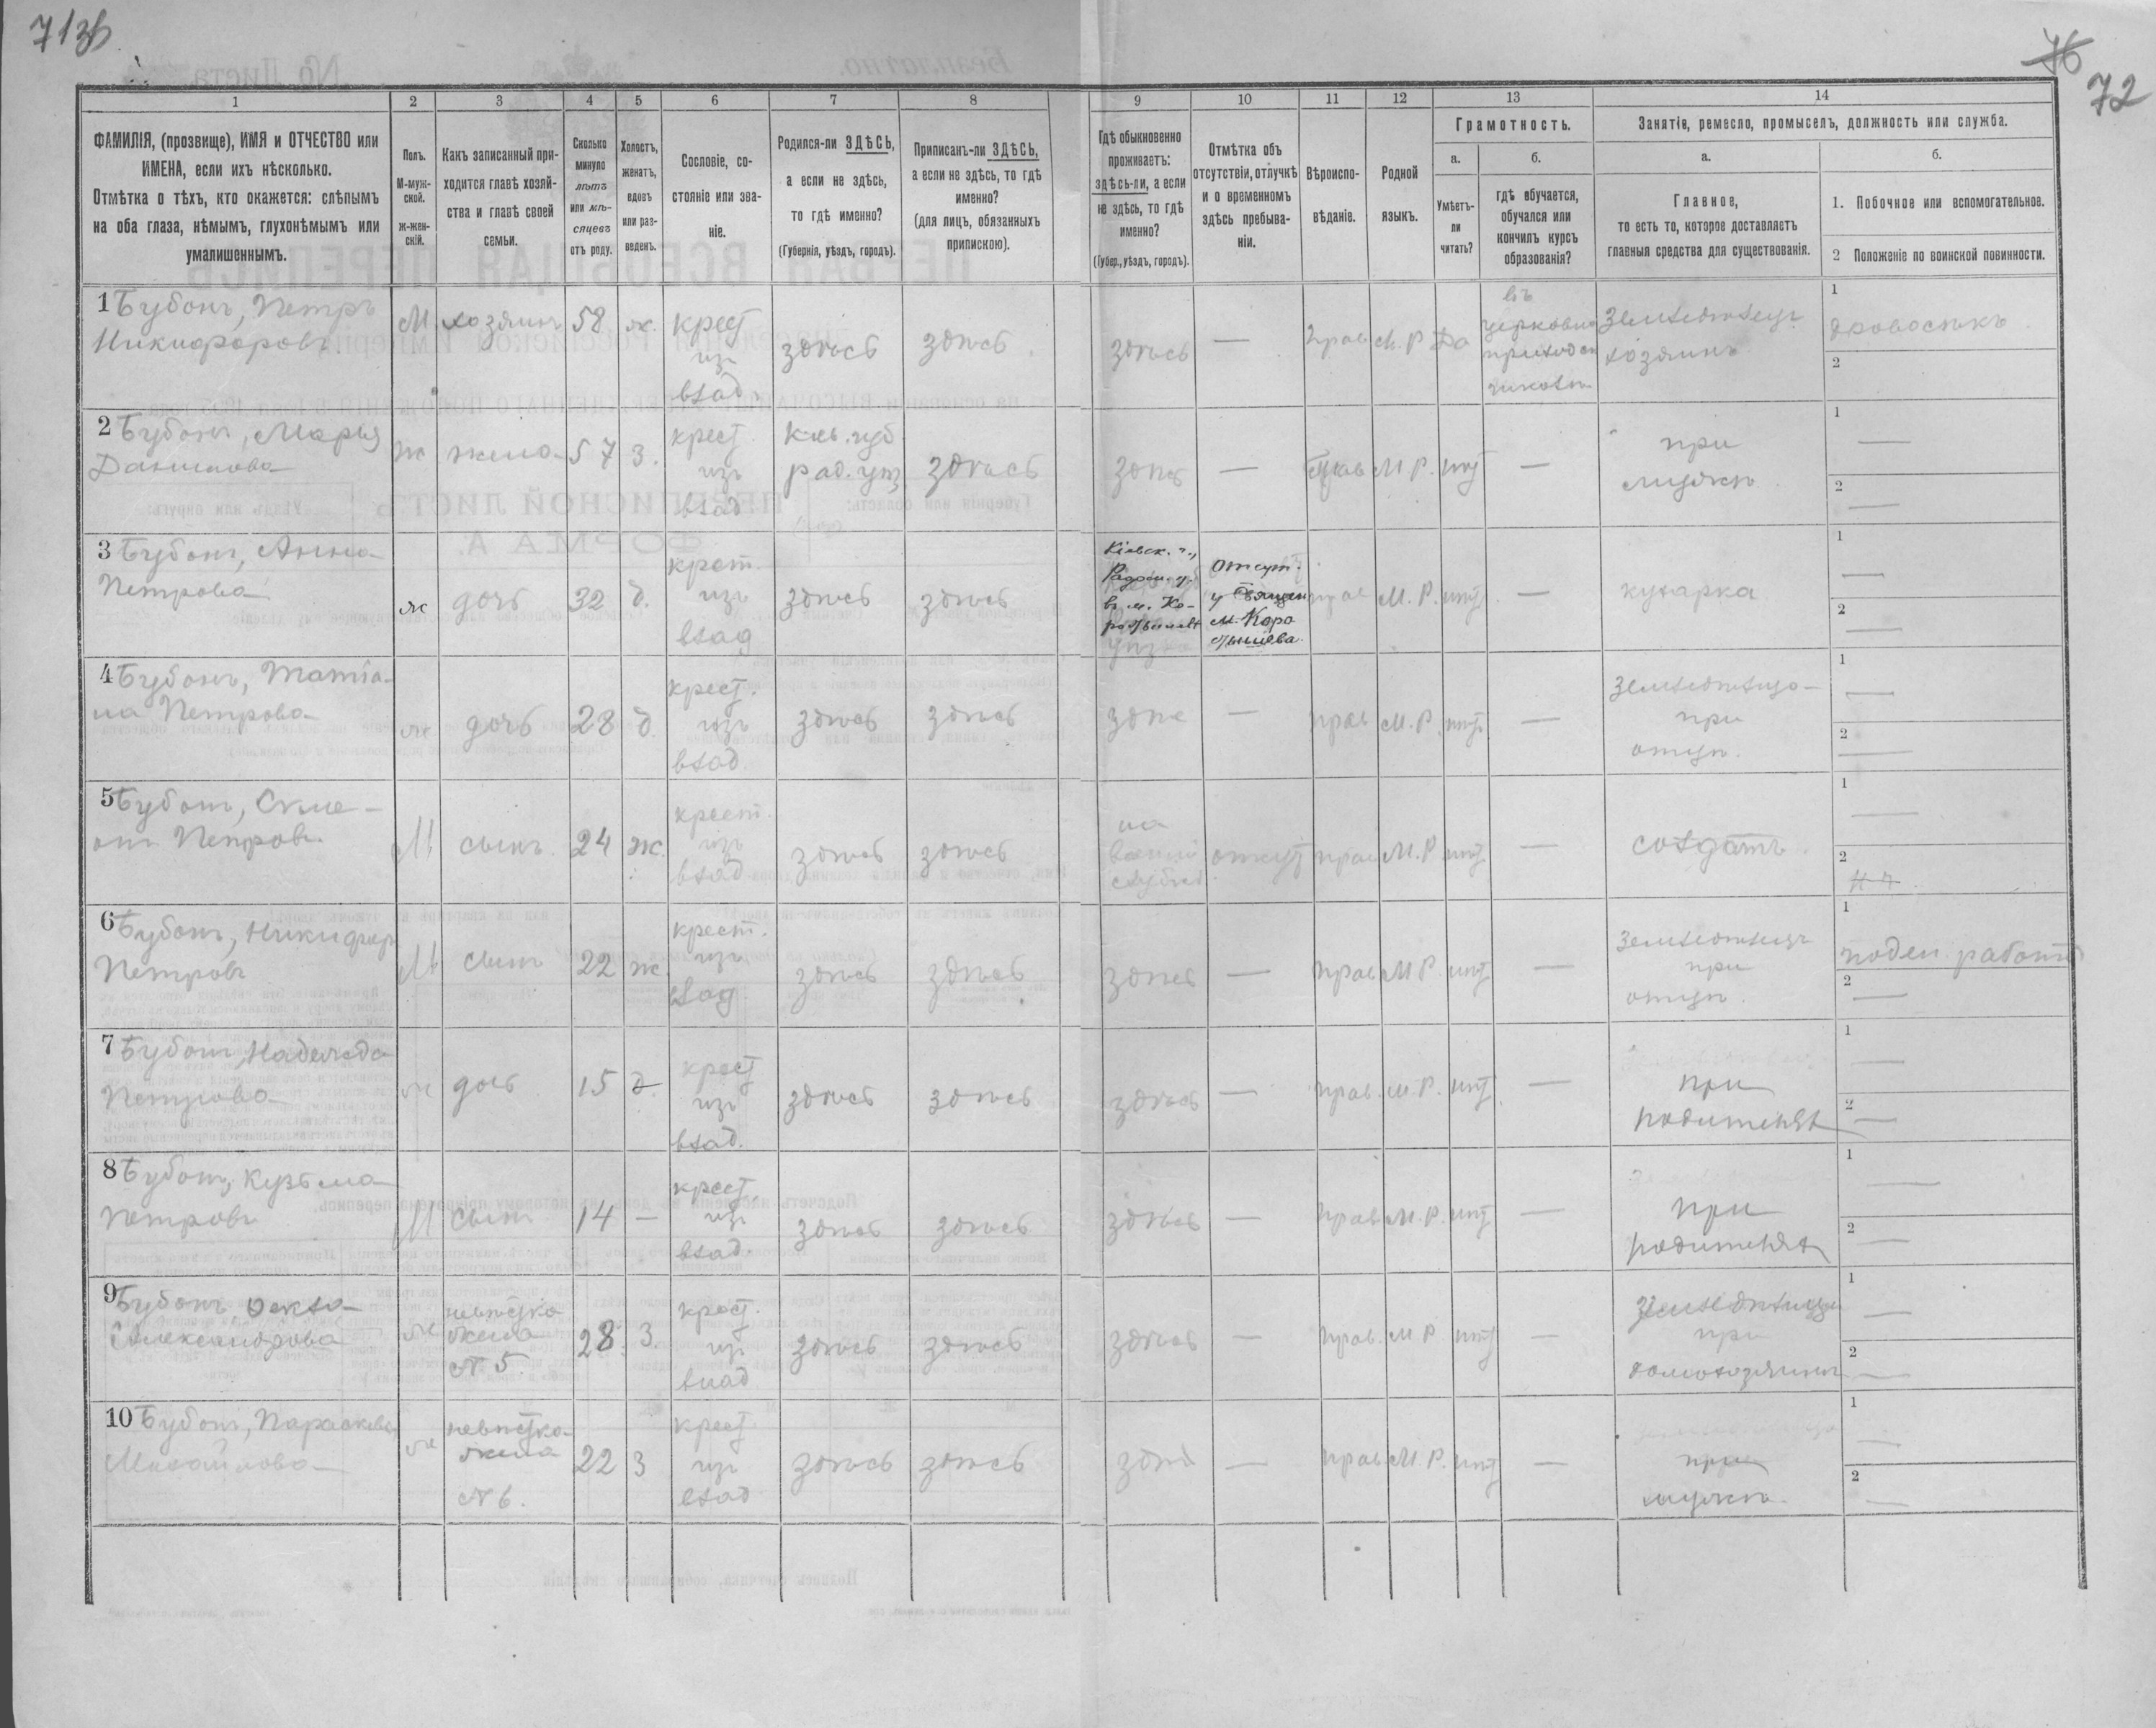 713б
76
72
1 2 3 4 5 6 7 8 9 10 11 12 13 14
ФАМИЛІЯ, (прозвище), ИМЯ и ОТЧЕСТВО или
ИМЕНА, если ихъ нѣсколько.
Отмѣтка о тѣхъ, кто окажется: слѣпымъ
на оба глаза, нѣмымъ, глухонѣмымъ или
умалишеннымъ.
Полъ.
М-муж-
ской.
ж-жен-
скій.
Какъ записанный при-
ходится главѣ хозяй-
ства и главѣ своей
семьи.
Сколько
минуло
лѣтъ
или мѣ-
сяцевъ
отъ роду.
Холостъ,
женатъ,
вдовъ
или раз-
веденъ.
Сословіе, со-
стояніе или зва-
ніе.
Родился-ли ЗДѢСЬ,
а если не здѣсь,
то гдѣ именно?
(Губернія, уѣздъ, городъ).
Приписанъ-ли ЗДѢСЬ,
а если не здѣсь, то гдѣ
именно?
(для лицъ, обязанныхъ
припискою).
Гдѣ обыкновенно
проживаетъ:
здѣсь-ли, а если
не здѣсь, то гдѣ
именно?
(Губер., уѣздъ, городъ).
Отмѣтка объ
отсутствіи, отлучкѣ
и о временномъ
здѣсь пребыва-
ніи.
Вѣроиспо-
вѣданіе.
Родной
языкъ.
Грамотность.
а.
Умѣетъ-
ли
читать?
б.
гдѣ обучается,
обучался или
кончилъ курсъ
образованія?
Занятіе, ремесло, промыселъ, должность или служба.
а.
Главное,
то есть то, которое доставляетъ
главныя средства для существованія.
б.
1. Побочное или вспомогательное.
2 Положеніе по воинской повинности.
1 Бубонъ, Петръ
Никифоровъ
М хозяинъ 58 ж. крест
изъ
влад.
здѣсь здѣсь здѣсь — прав М. Р Да
въ
церковно
приходск
школѣ
Земледѣлецъ
хозяинъ
1
дровосѣкъ
2
2 Бубонъ, Марья
Данилова
ж жена 57 З. крест.
изъ
влад
Кіев. губ.
рад. уѣз
здѣсь здѣсь — прав М Р. нѣт —
при
мужѣ
1 —
2 —
3 Бубонъ, Анна
Петрова
ж дочь 32 д. крест.
изъ
влад
здѣсь здѣсь
Кіевск. г.,
Радом. у.
в м. Ко-
ростышевѣ
отсут.
у Священ
м. Коро
стышева.
прав М. Р. нѣт —
кухарка
1 —
2 —
4 Бубонъ, Татіа-
на Петрова
ж дочь 28 д. крест.
изъ
влад.
здѣсь здѣсь здѣс — прав М. Р. нѣт —
земледѣлица
при
отцѣ.
1 —
2 —
5 Бубон, Симе-
он Петровъ
М сынъ 24 ж. крест.
изъ
влад
здѣсь здѣсь
на
воен.
службѣ
отсут прав М. Р нѣт —
солдатъ.
1 —
2
6 Бубонъ, Никифор
Петровъ
М сынъ 22 ж. крест.
изъ
влад.
здѣсь здѣсь здѣсь — прав М Р. нѣт —
Земледѣлецъ
при
отцѣ.
1
поден. работ
2 —
7 Бубон, Надежда
Петрова
ж дочь 15 д. крест
изъ
влад.
здѣсь здѣсь здѣсь — прав. М. Р. нѣт —
при
родителях
1 —
2 —
8 Бубон, Кузьма
Петровъ
М сын 14 — крест.
изъ
влад.
здѣсь здѣсь здѣсь — прав М. Р. нѣт —
при
родителях
1 —
2 —
9 Бубонъ Фекла
Александрова
ж невѣстка
жена
№ 5
28. З. крест.
изъ
влад
здѣсь здѣсь здѣсь — прав. М Р. нѣт —
земледѣлица
при
домохозяинѣ
1 —
2 —
10 Бубон, Параскева
Михайлова
ж невѣстка
жена
№ 6.
22 З крест.
изъ
влад
здѣсь здѣсь здѣс — прав М. Р. нѣт —
при
мужѣ.
1 —
2 —